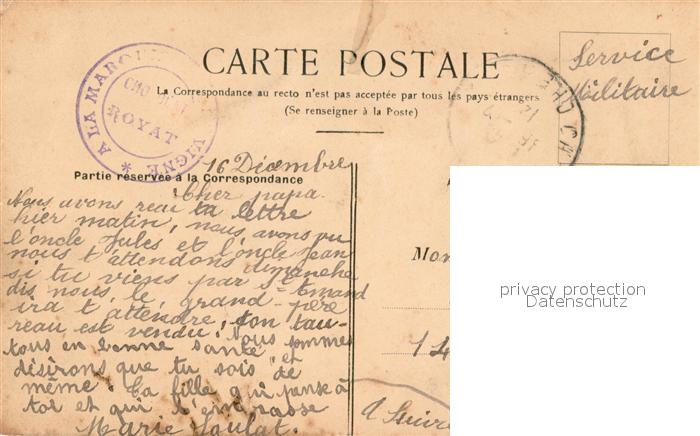 A LA MARQUI
VIGNE
ROYAT
CARTE POSTALE
La Correspondance au recto n'est pas acceptée par tous les pays étrangers
(Se renseigner à la Poste)
Service
Militaire
Partie réservée à la Correspondance
16 Décembre
Cher papa.
Nous avons reçu ta lettre
hier matin, nous avons vu
l'oncle Jules et l'oncle Jean
nous t'attendons dimanche
si tu viens par St-Amand
dis nous le, grand-père
ira t'attendre, ton tau-
reau est vendu. Nous sommes
tous en bonne santé et
désirons que tu sois de
même. Ta fille qui pense à
toi et qui t'embrasse
Marie
Mon
14
A Suivre
privacy protection
Datenschutz